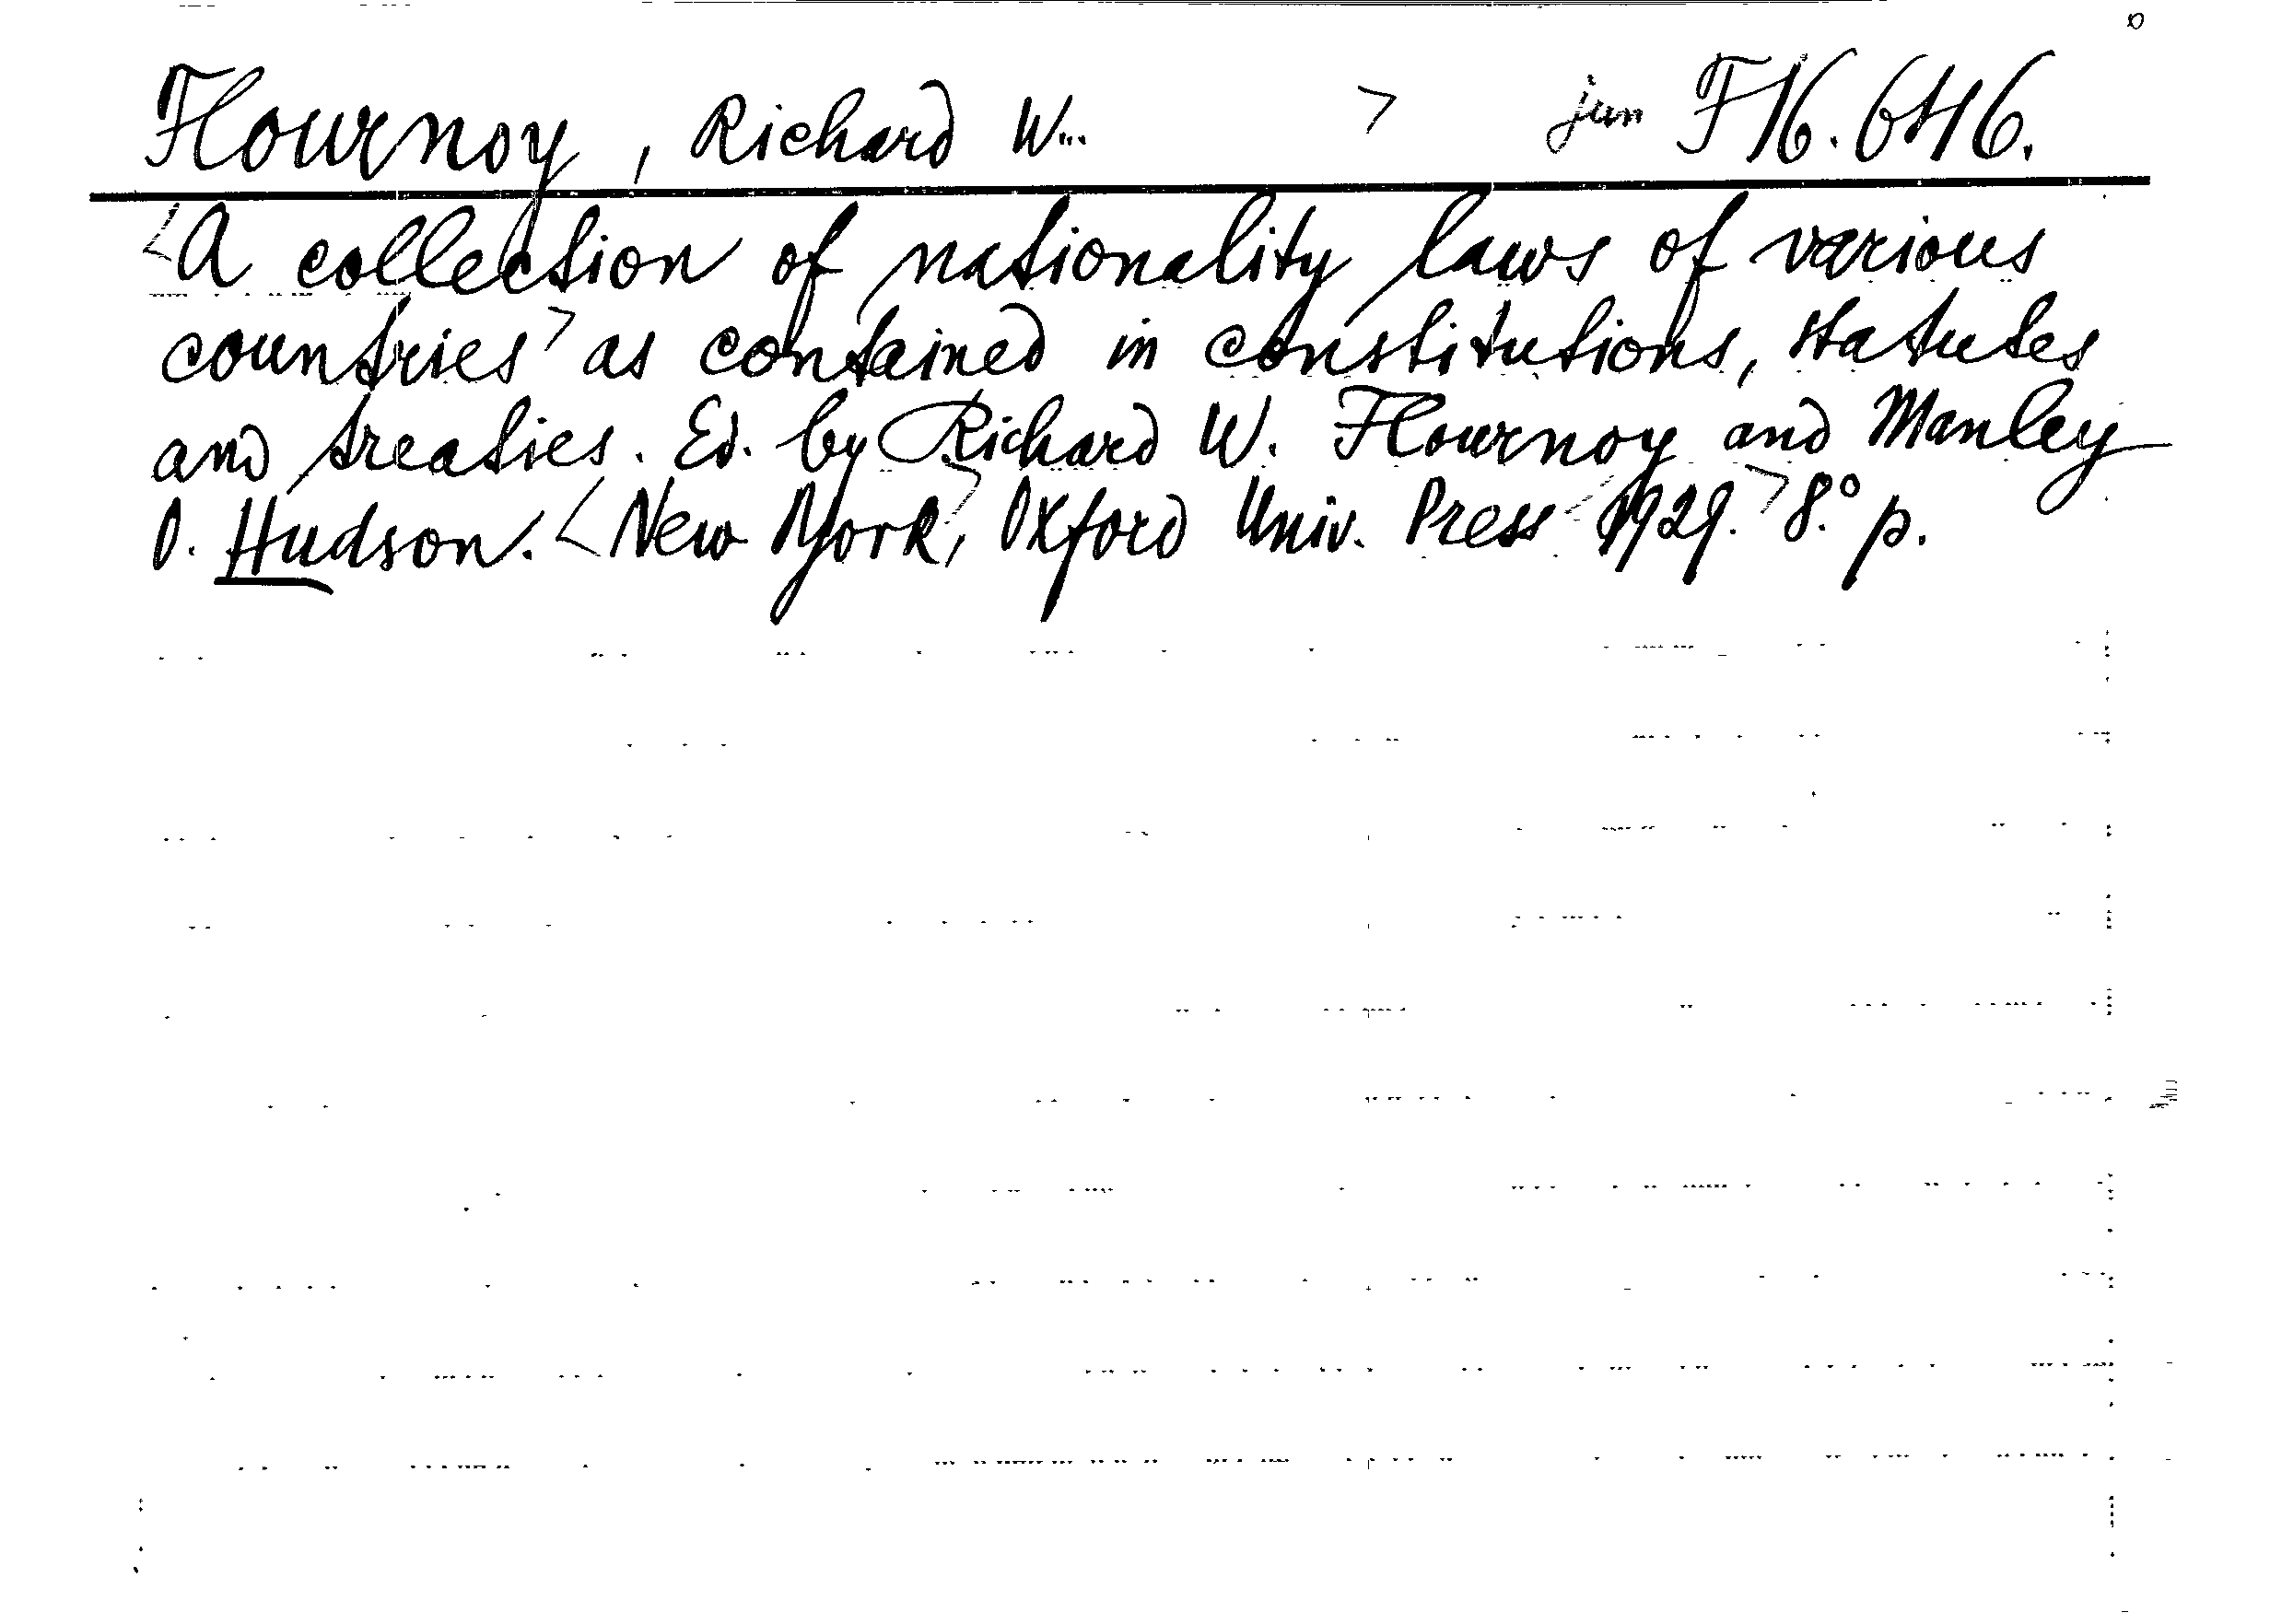 Flournoy, Richard W... > jun F16.646.
<A collection of nationality laws of various
countries> as contained in constitutions, statutes
and treaties. Ed. by Richard W. Flournoy and Manley
O. Hudson. <New York>, Oxford Univ. Press <1929.> 8.° p.